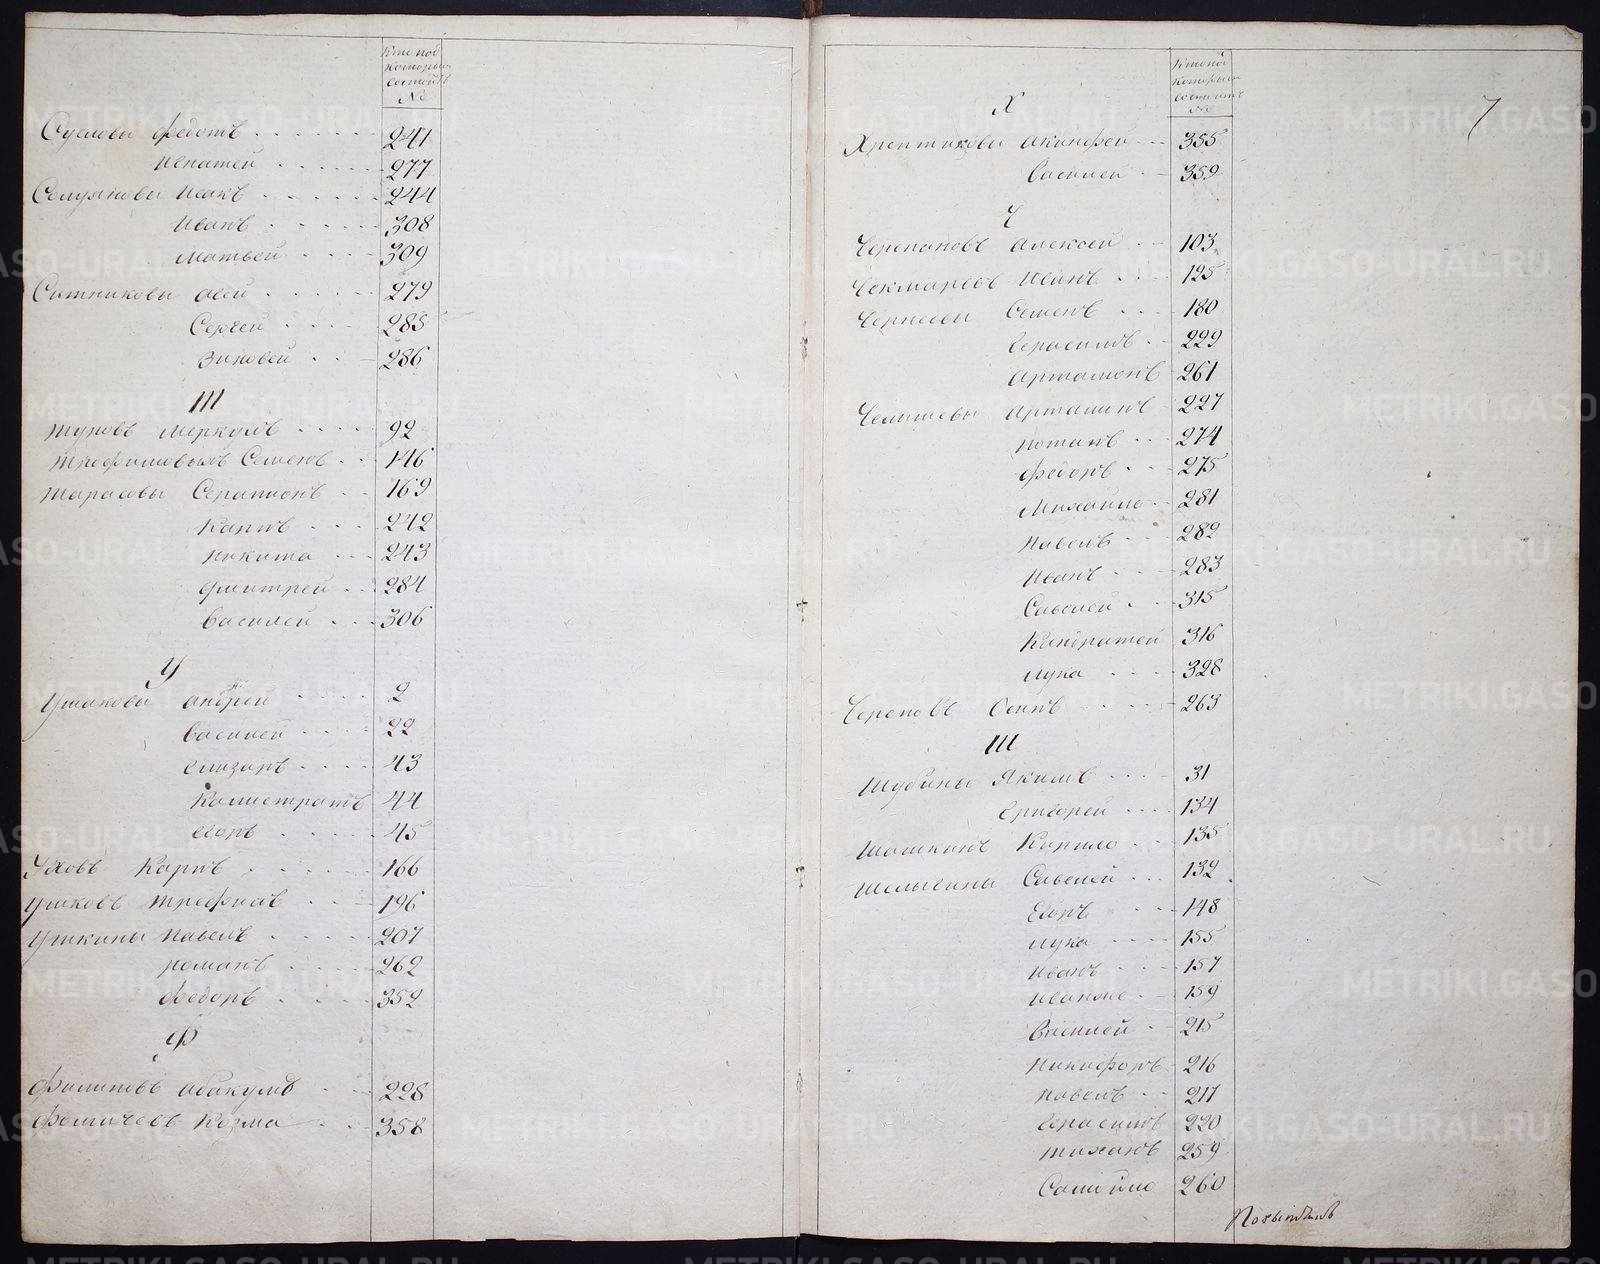 Кто под
которым
состоитъ
№
Сусловы Федотъ 241
Игнатей 277
Селуяновы Исакъ 244
Иванъ 308
Матвей 309
Ситниковы Авей 279
Сергей 285
Зиновей 286
Т
Туровъ Меркулъ 92
Трофимовыхъ Семенъ 146
Тарасовы Серапионъ 169
Карпъ 242
Никита 243
Дмитрей 284
Василей 306
У
Ушаковы Андрей 2
Василей 22
Елизаръ 43
Калистратъ 44
Егоръ 45
Уховъ Карпъ 166
Ушковъ Трефилъ 196
Уткины Павелъ 207
Романъ 262
Федоръ 352
Ф
Филиповъ Абакумъ 228
Фомичевъ Козма 358
7
Кто под
которым
состоитъ
№
Х
Хрептиковы Акинфей 355
Василей 359
Ч
Черепановъ Алексей 103
Чекмаревъ Иванъ 125
Черневы Семенъ 180
Герасимъ 229
Артамонъ 261
Челышевы 227
Потапъ 274
Федоръ 275
Михайло 281
Павелъ 282
Иванъ 283
Савелей 315
Кондратей 316
Лука 328
Череповъ Осипъ 263
Ш
Шубины Якимъ 31
Григорей 134
Шашкинъ Кирило 135
Шелыгины Савелей 132
Егоръ 148
Лука 155
Иванъ 157
Иванже 159
Василей 215
Никифоръ 216
Павелъ 217
Герасимъ 220
Тихонъ 259
Самойло 260
METRIKI.GASO-URAL.RU